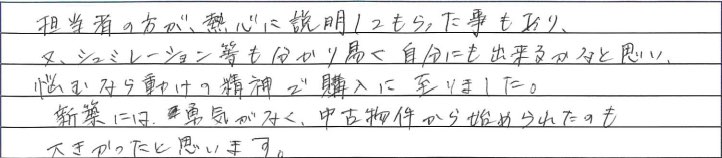 担当者の方が、熱心に説明してもらった事もあり、
又、シュミレーション等も分かり易く自分にも出来るかなと思い、
悩むなら動けの精神で購入に至りました。
新築には勇気がなく、中古物件から始められたのも
大きかったと思います。